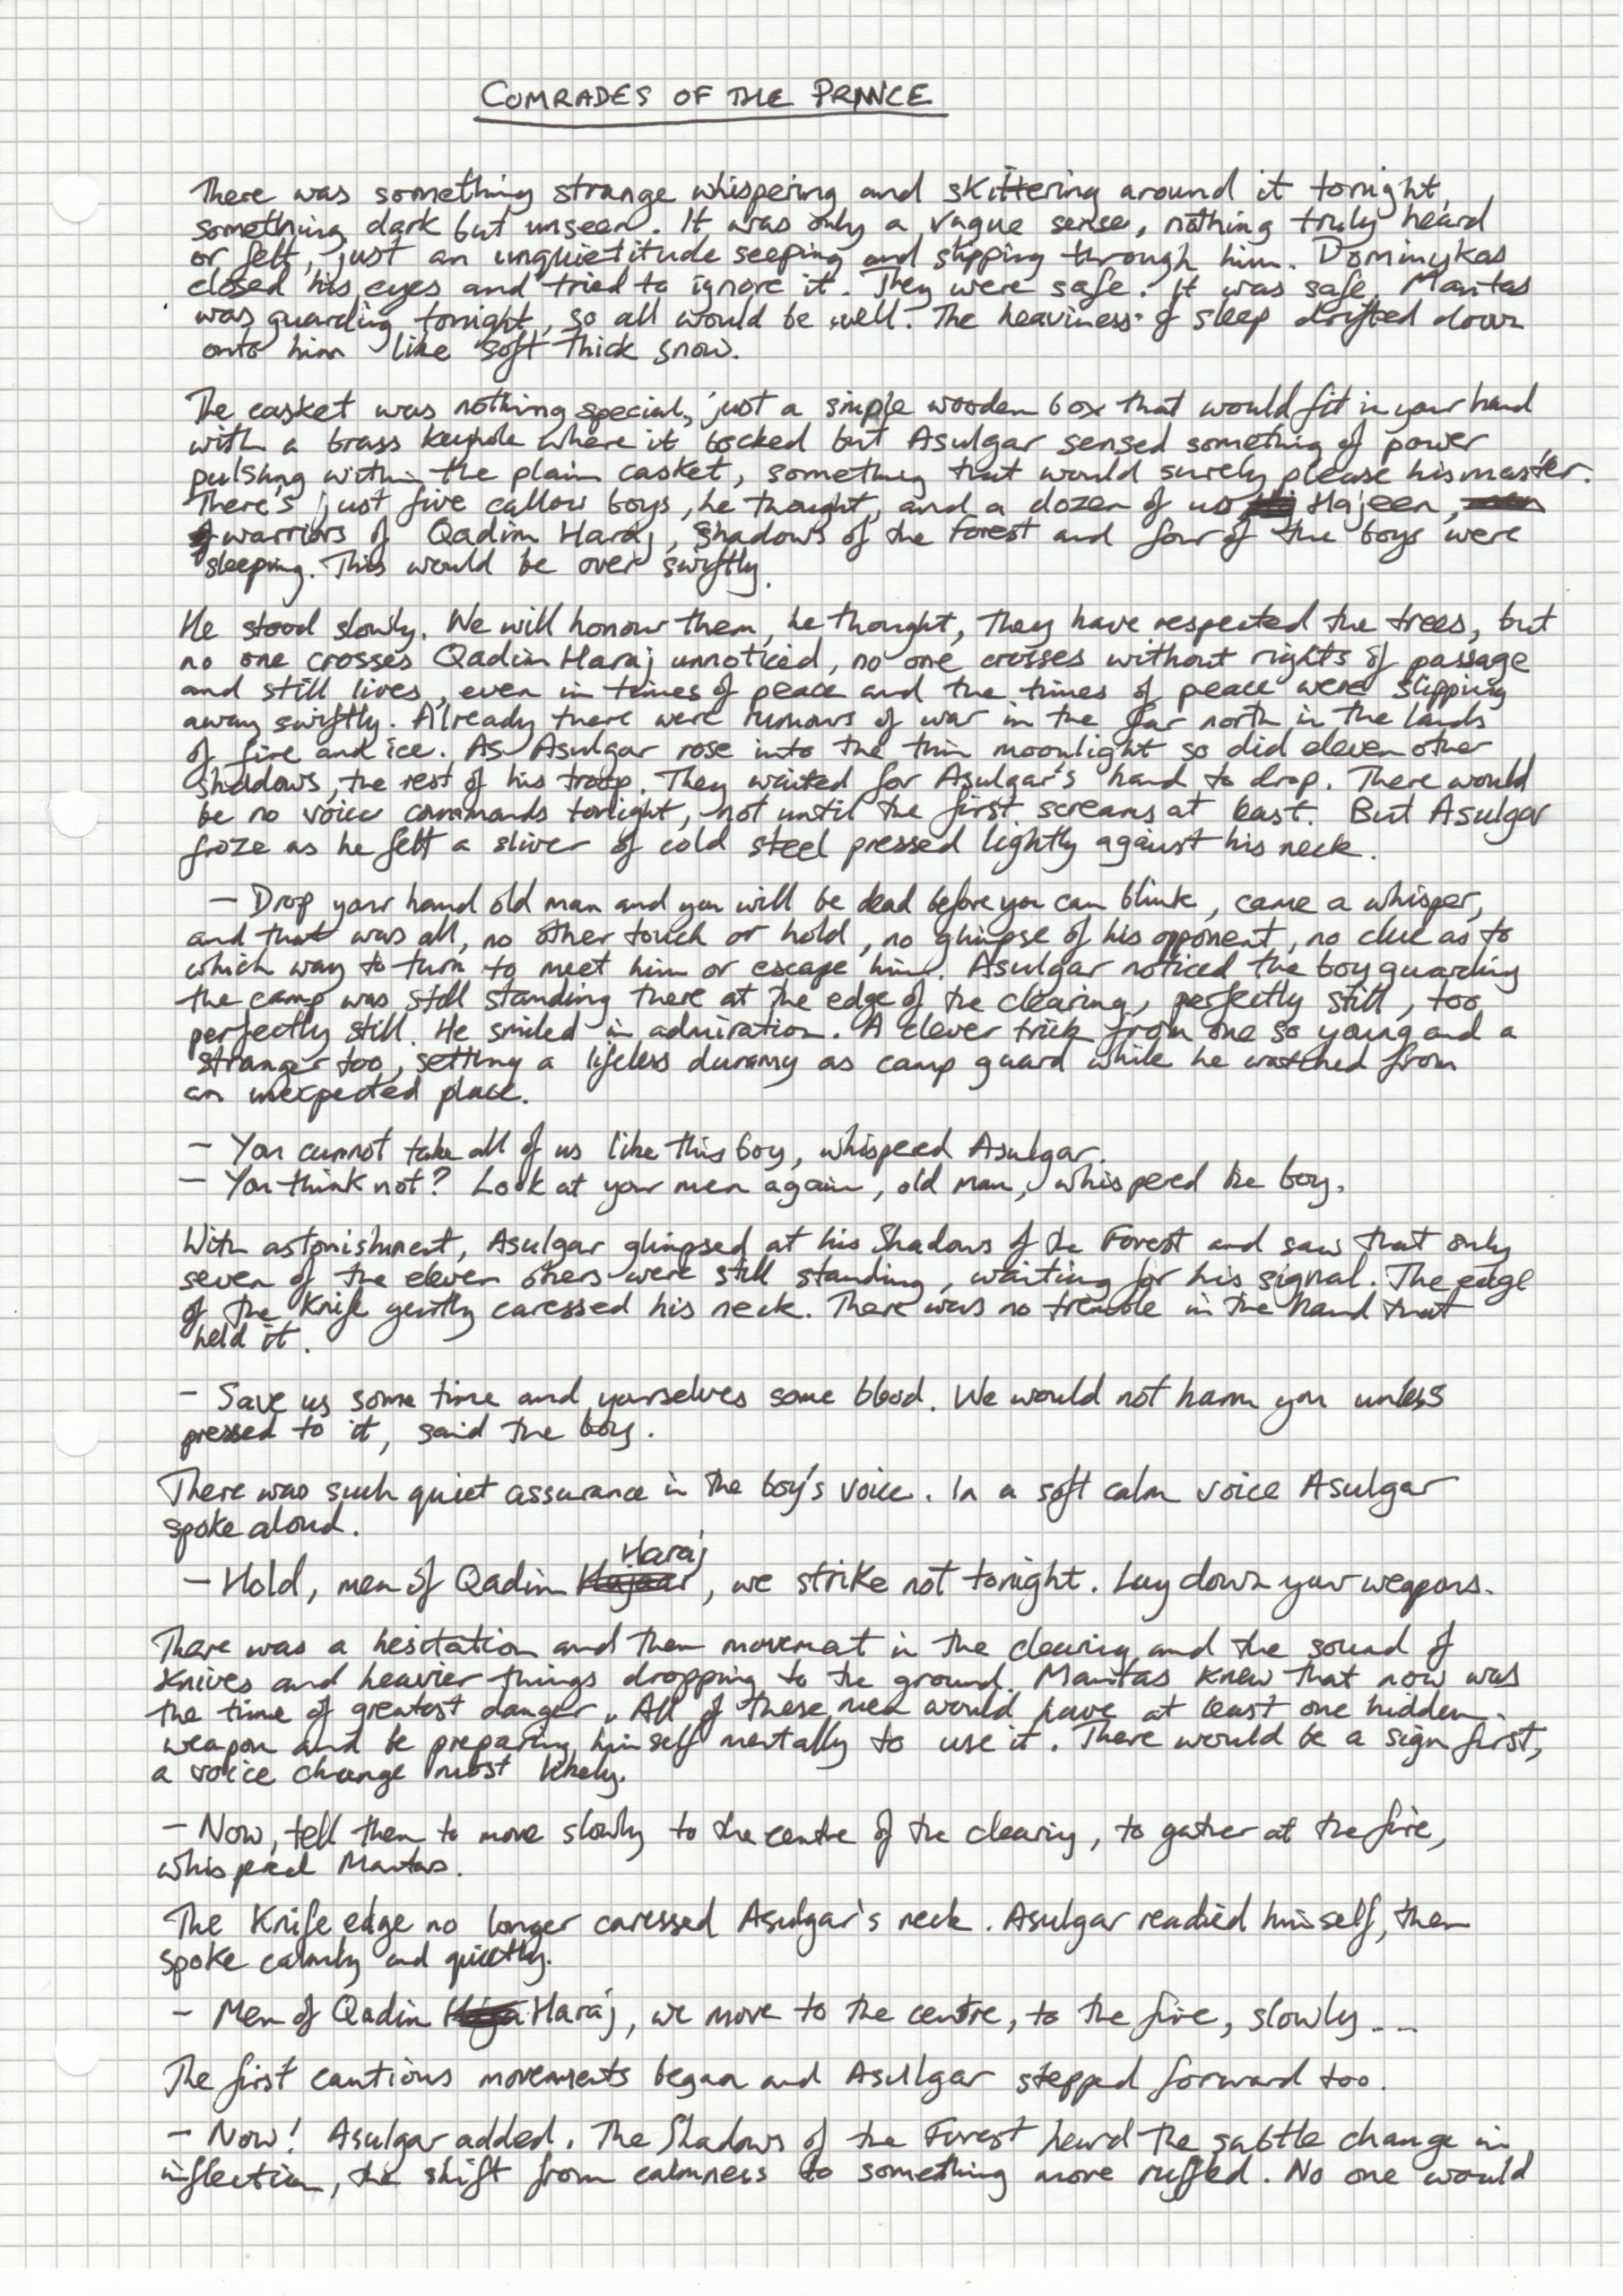 COMRADES OF THE PRINCE
There was something strange whispering and skittering around it tonight,
something dark but unseen. It was only a vague sense, nothing truly heard
or felt, just an unquietitude seeping and slipping through him. Dominykas
closed his eyes and tried to ignore it. They were safe. It was safe. Mantas
was guarding tonight, so all would be well. The heaviness of sleep drifted down
onto him like soft thick snow.
The casket was nothing special, just a simple wooden box that would fit in your hand
with a brass keyhole where it locked but Asulgar sensed something of power
pulsing within the plain casket, something that would surely please his master.
There's just five callow boys, he thought, and a dozen of us Hajeen,
warriors of Qadim Haraj, shadows of the Forest and four of the boys were
sleeping. This would be over swiftly.
He stood slowly. We will honour them, he thought, They have respected the trees, but
no one crosses Qadim Haraj unnoticed, no one crosses without rights of passage
and still lives, even in times of peace and the times of peace were slipping
away swiftly. Already there were rumours of war in the far north in the lands
of fire and ice. As Asulgar rose into the thin moonlight so did eleven other
shaddows, the rest of his troop. They waited for Asulgar's hand to drop. There would
be no voice commands tonight, not until the first screams at least. But Asulgar
froze as he felt a sliver of cold steel pressed lightly against his neck.
- Drop your hand old man and you will be dead before you can blink, came a whisper,
and that was all, no other touch or hold, no glimpse of his opponent, no clue as to
which way to turn to meet him or escape him. Asulgar noticed the boy guarding
the camp was still standing there at the edge of the clearing, perfectly still, too
perfectly still. He smiled in admiration. A clever trick from one so young and a
stranger too, setting a lifeless dummy as camp guard while he watched from
an unexpected place.
- You cannot take all of us like this boy, whispeed Asulgar.
- You think not? Look at your men again, old man, whispered the boy.
With astonishment, Asulgar glimpsed at his Shadows of the Forest and saw that only
seven of the eleven others were still standing, waiting for his signal. The edge
of the Knife gently caressed his neck. There was no tremble in the hand that
held it.
- Save us some time and yourselves some blood. We would not harm you unless
pressed to it, said the boy.
There was such quiet assurance in the boy's voice. In a soft calm voice Asulgar
spoke aloud.
- Hold, men of Qadim Haraj, we strike not tonight. Lay down your weapons.
There was a hesitation and then movement in the clearing and the sound of
Knives and heavier things dropping to the ground. Mantas knew that now was
the time of greatest danger. All of these men would have at least one hidden
weapon and be preparing himself mentally to use it. There would be a sign first,
a voice change most likely.
- Now, tell them to move slowly to the centre of the clearing, to gather at the fire,
whispered Mantas.
The Knife edge no longer caressed Asulgar's neck. Asulgar readied himself, then
spoke calmly and quietly.
- Men of Qadim Haraj, we move to the centre, to the fire, slowly...
The first cautious movements began and Asulgar stepped forward too.
- Now! Asulgar added. The Shadows of the Forest heard the subtle change in
inflection, the shift from calmness to something more ruffed. No one would